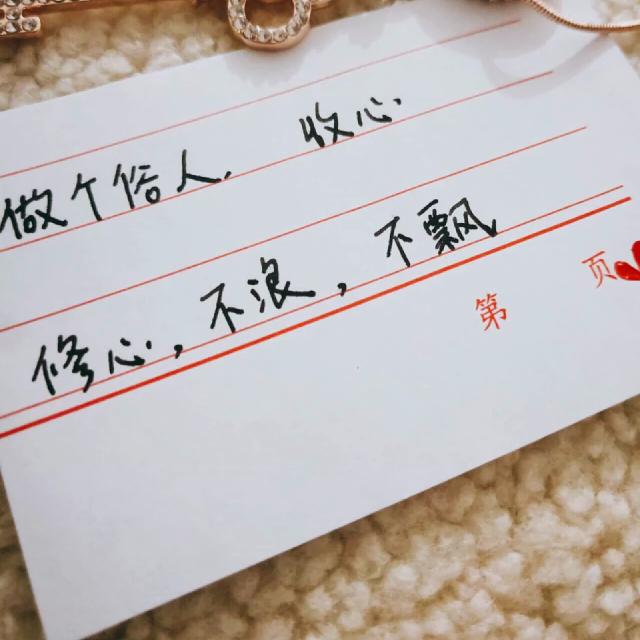 做个俗人, 收心.
修心, 不浪, 不飘
第 页